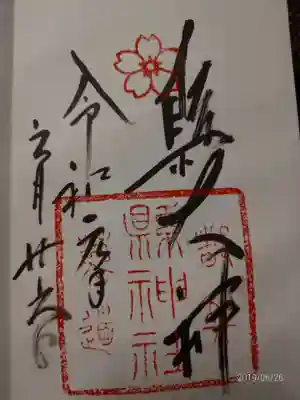 縣大神
令和元年
六月廿六日
縣神社
2019/06/26